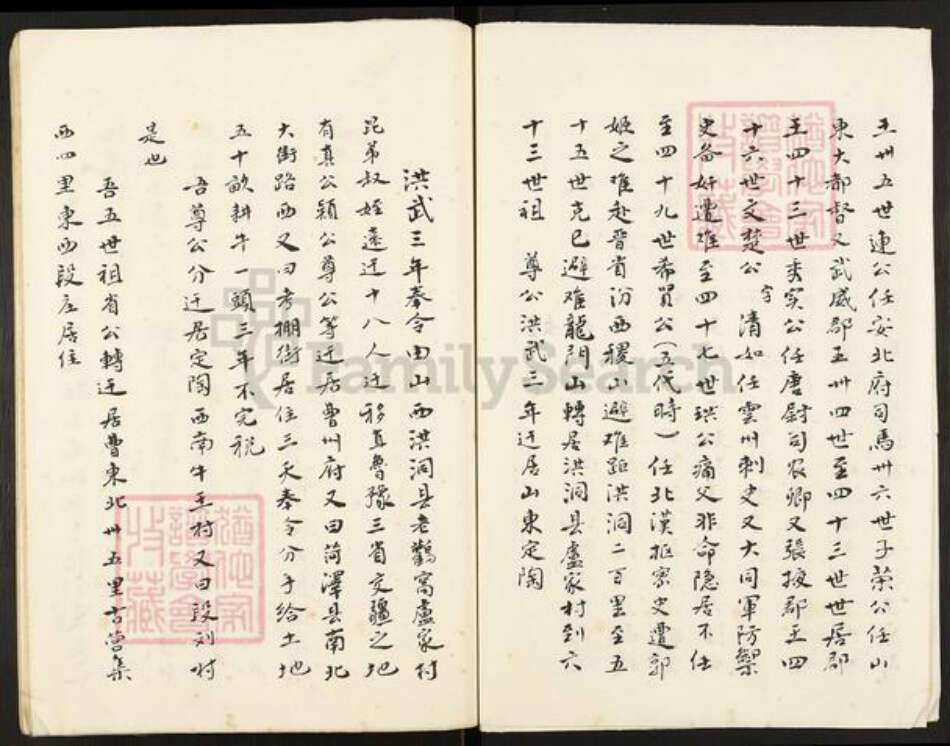 王卅五世連公任安北府司馬卅六世子荣公任山
東大都督又武威郡王卅四世至四十三世世居郡
王四十三世秀实公任唐尉司农卿又張掖郡王四
十六世文楚公字清如任雲州刺史又大同軍防禦
史备奸遭难至四十七世珙公痛父非命隐居不仕
至四十九世希買公（五代時）任北漢拒察史遭郭
姬之难赴晋省汾西稷山避难距洪洞二百里至五
十五世克已避难龍門山轉居洪洞县盧家村到六
十三世祖 尊公洪武三年迁居山東定陶
洪武三年奉令由山西洪洞县老鸛窩盧家村
昆弟叔姪遠迁十八人迁移直魯豫三省交疆之地
有真公穎公尊公等迁居曹州府又曰菏澤县南北
大街路西又曰考棚街居住三天奉令分予给土地
五十畝耕牛一頭三年不完税
吾尊公分迁居定陶西南牛王村又曰段刘村
是也
吾五世祖省公轉迁居曹東北卅五里古营集
西四里東西段庄居住
猶他家譜學會收藏
猶他家譜學會收藏
FamilySearch